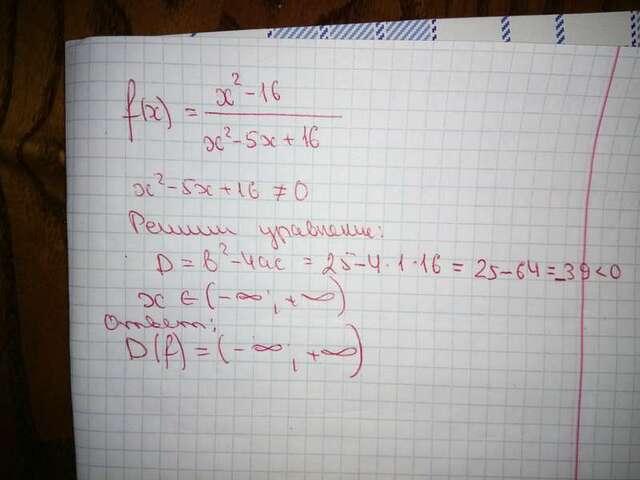 f(x) = x² - 16 / x² - 5x + 16
x² - 5x + 16 ≠ 0
Решим уравнение:
D = b² - 4ac = 25 - 4 · 1 · 16 = 25 - 64 = -39 < 0
x ∈ (-∞; +∞)
Ответ:
D(f) = (-∞; +∞)